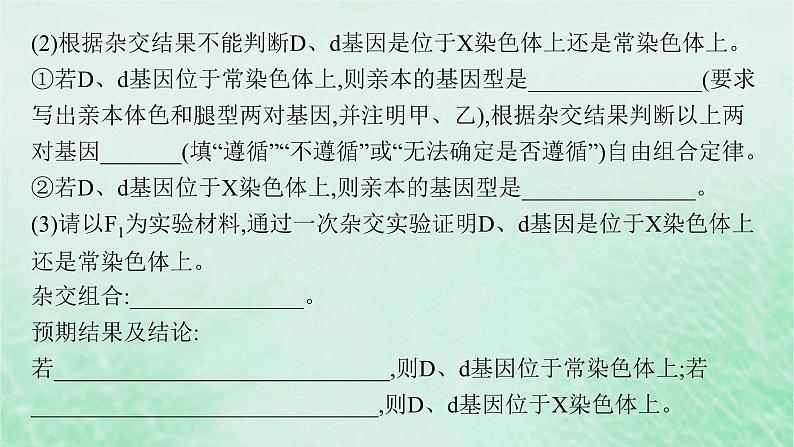 (2)根据杂交结果不能判断D、d基因是位于X染色体上还是常染色体上。
①若D、d基因位于常染色体上,则亲本的基因型是________________(要求
写出亲本体色和腿型两对基因,并注明甲、乙),根据杂交结果判断以上两
对基因_______(填“遵循”“不遵循”或“无法确定是否遵循”)自由组合定律。
②若D、d基因位于X染色体上,则亲本的基因型是________________。
(3)请以F1为实验材料,通过一次杂交实验证明D、d基因是位于X染色体上
还是常染色体上。
杂交组合:________________。
预期结果及结论:
若______________________________,则D、d基因位于常染色体上;若
_______________________________,则D、d基因位于X染色体上。